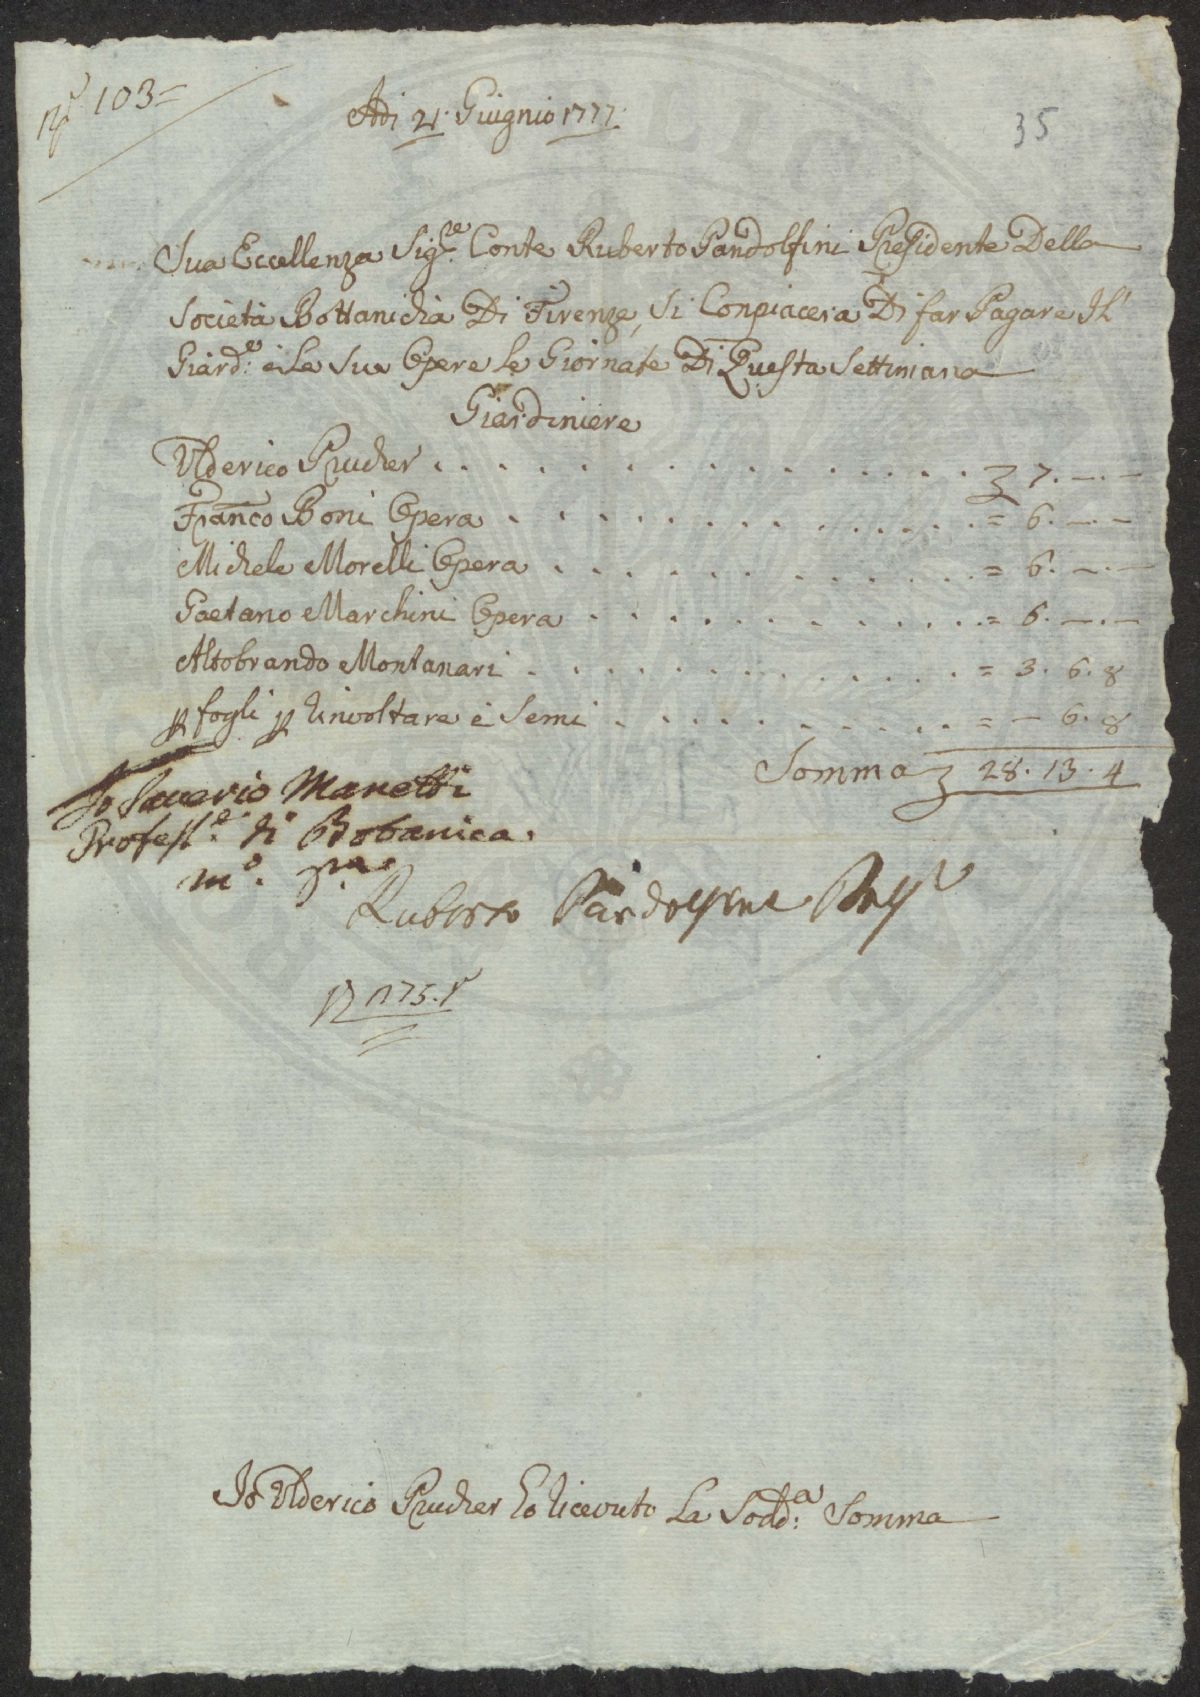 N.° 103=
Adi 21. Guignio 1777.
35
Sua Eccellenza Sig.re Conte Ruberto Pandolfini Presidente Della
Società Bottanicha Di Firenze, Si Conpiacera Di far Pagare Il
Giard.e è Le Sue Opere Le Giornate Di Questa Settimana
Giardiniere
Ulderico Prucher . . . . . . . . . . . . . . 7. —. —
Franco Boni Opera . . . . . . . . . . . . = 6. —. —
Michele Morelli Opera . . . . . . . . . . = 6. —. —
Gaetano Marchini Opera . . . . . . . . . . = 6. —. —
Altobrando Montanari . . . . . . . . . . . = 3. 6. 8
p fogli p rinvoltare è Semi . . . . . . . . = — 6. 8
Somma 28. 13. 4
Io Saverio Manetti
Profess.e di Botanica
m.o p.a
Ruberto Pandolfini Pres.
1175.
Io Ulderico Prucher ho ricevuto La Sodd.a Somma